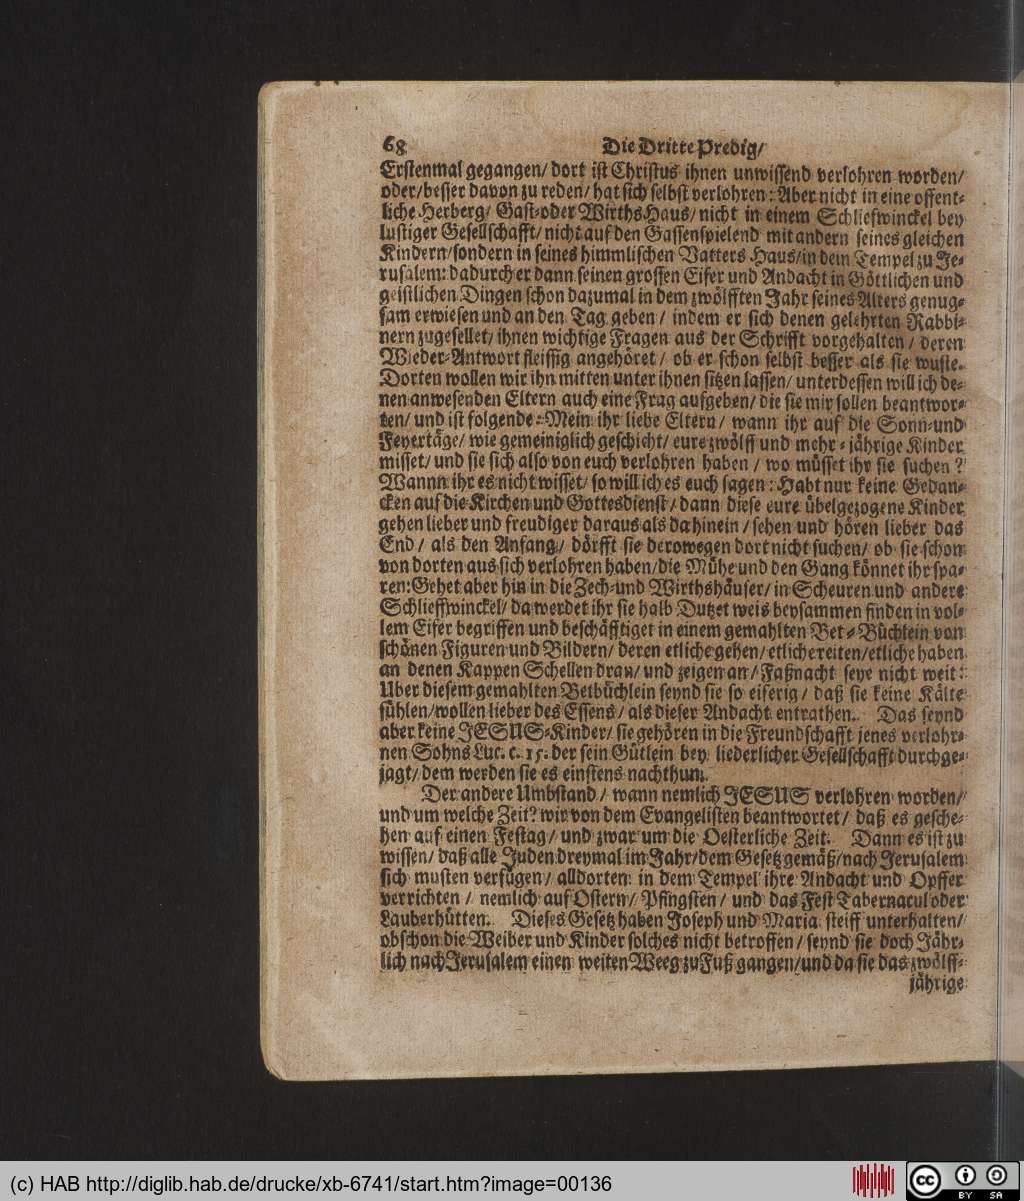 68 Die Dritte Predig/
Erstenmal gegangen/ dort ist Christus ihnen unwissend verlohren worden/
oder/ besser davon zu reden/ hat sich selbst verlohren: Aber nicht in eine offent-
liche Herberg/ Gast-oder Wirths Haus/ nicht in einem Schliefwinckel bey
lustiger Gesellschafft/ nicht auf den Gassen spielend mit andern seines gleichen
Kindern/ sondern in seines himmlischen Vatters Haus/ in dem Tempel zu Je-
rusalem: dadurch er dann seinen grossen Eifer und Andacht in Göttlichen und
geistlichen Dingen schon dazumal in dem zwölfften Jahr seines Alters genug-
sam erwiesen und an den Tag geben/ indem er sich denen gelehrten Rabbi-
nern zugesellet/ ihnen wichtige Fragen aus der Schrifft vorgehalten/ deren
Wieder-Antwort fleissig angehöret/ ob er schon selbst besser als sie wuste.
Dorten wollen wir ihn mitten unter ihnen sitzen lassen/ unterdessen will ich de-
nen anwesenden Eltern auch eine Frag aufgeben/ die sie mir sollen beantwor-
ten/ und ist folgende: Mein ihr liebe Eltern/ wann ihr auf die Sonn-und
Feyertäge/ wie gemeiniglich geschicht/ eure zwölff und mehr-jährige Kinder
misset/ und sie sich also von euch verlohren haben/ wo müsset ihr sie suchen?
Wannn ihr es nicht wisset/ so will ich es euch sagen: Habt nur keine Gedan-
cken auf die Kirchen und Gottesdienst/ dann diese eure übelgezogene Kinder
gehen lieber und freudiger daraus als da hinein/ sehen und hören lieber das
End/ als den Anfang/ dörfft sie derowegen dort nicht suchen/ ob sie schon
von dorten aus sich verlohren haben/ die Mühe und den Gang könnet ihr spa-
ren: Gehet aber hin in die Zech-und Wirthshäuser/ in Scheuren und andere
Schlieffwinckel/ da werdet ihr sie halb Dutzet weis beysammen finden in vol-
lem Eifer begriffen und beschäfftiget in einem gemahlten Bet-Büchlein von
schönen Figuren und Bildern/ deren etliche gehen/ etliche reiten/ etliche haben
an denen Kappen Schellen dran/ und zeigen an/ Faßnacht seye nicht weit:
Uber diesem gemahlten Betbüchlein seynd sie so eiferig/ daß sie keine Kälte
fühlen/ wollen lieber des Essens/ als dieser Andacht entrathen. Das seynd
aber keine JESUS-Kinder/ sie gehören in die Freundschafft jenes verlohr-
nen Sohns Luc. c. 15. der sein Gütlein bey liederlicher Gesellschafft durchge-
jagt/ dem werden sie es einstens nachthun.
Der andere Umbstand/ wann nemlich JESUS verlohren worden/
und um welche Zeit? wir von dem Evangelisten beantwortet/ daß es gesche-
hen auf einen Festag/ und zwar um die Oesterliche Zeit. Dann es ist zu
wissen/ daß alle Juden dreymal im Jahr/ dem Gesetz gemäß/ nach Jerusalem
sich musten verfügen/ alldorten in dem Tempel ihre Andacht und Opffer
verrichten/ nemlich auf Ostern/ Pfingsten/ und das Fest Tabernacul oder
Lauberhütten. Dieses Gesetz haben Joseph und Maria steiff unterhalten/
obschon die Weiber und Kinder solches nicht betroffen/ seynd sie doch Jähr-
lich nach Jerusalem einen weiten Weeg zu Fuß gangen/ und da sie das zwölff-
jährige
(c) HAB http://diglib.hab.de/drucke/xb-6741/start.htm?image=00136
cc BY SA